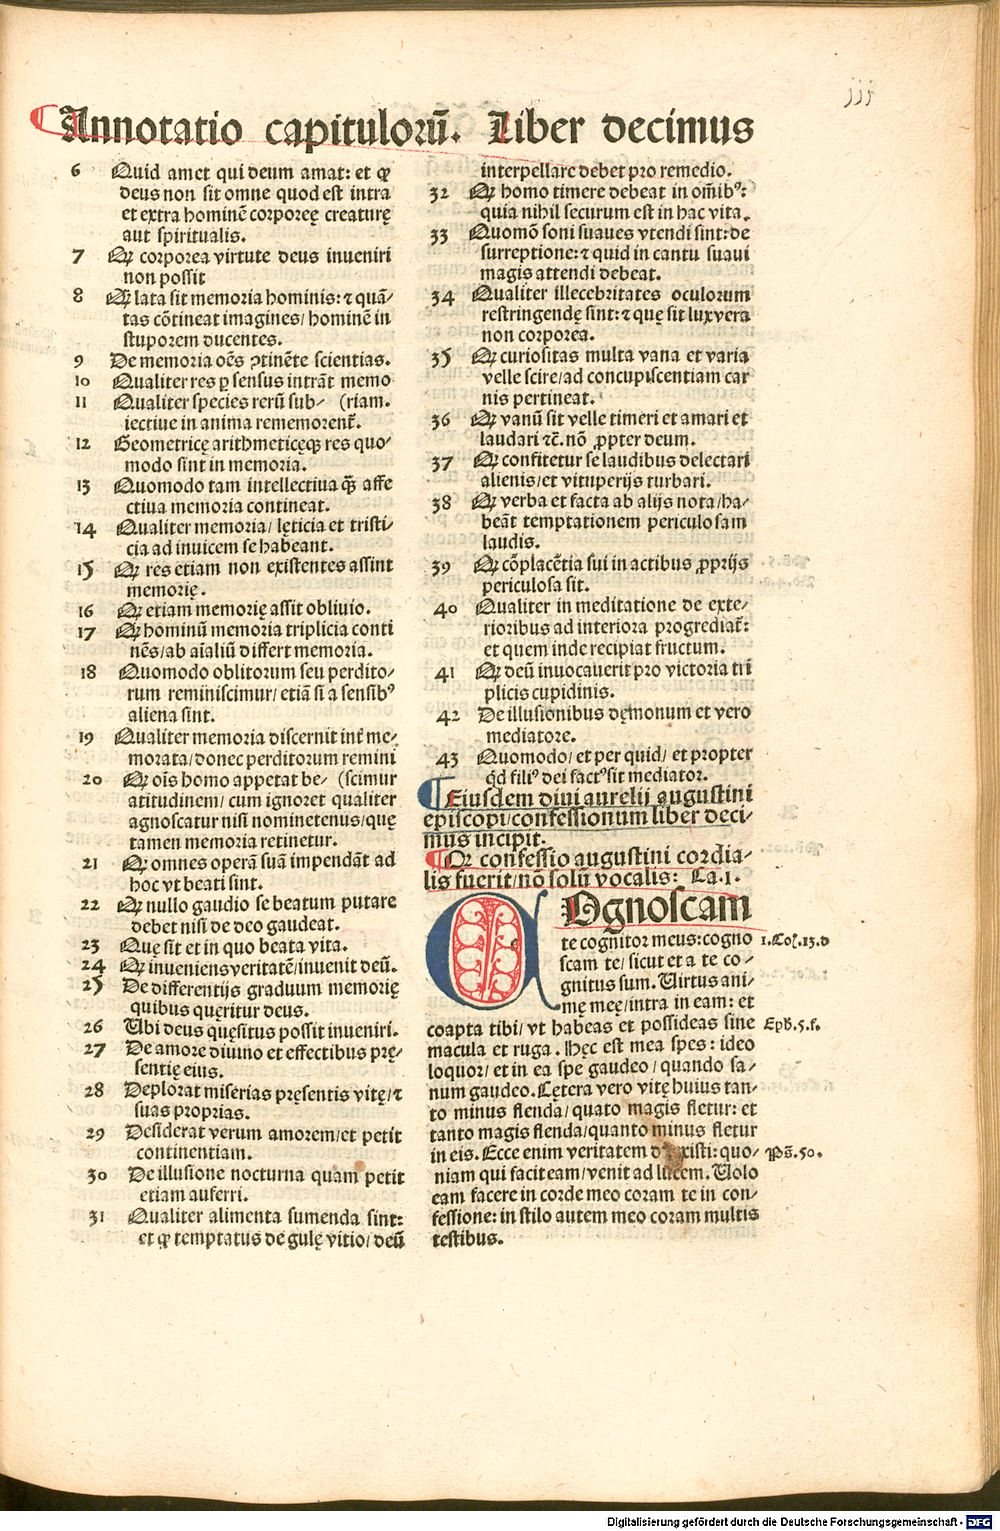 iij
Annotatio capitulorū. Liber decimus
6 Quid amet qui deum amat: et ꝙ
deus non sit omne quod est intra
et extra hominē corporeę creaturę
aut spiritualis.
7 Qꝛ corporea virtute deus inueniri
non possit
8 Qꝫ lata sit memoria hominis: ⁊ quā-
tas cōtineat imagines/ hominē in
stuporem ducentes.
9 De memoria oēs ꝯtinēte scientias.
10 Qualiter res ꝑ sensus intrāt memo
11 Qualiter species rerū sub- (riam.
iectiue in anima rememorent᷑.
12 Geometricę arithmeticęqꝫ res quo-
modo sint in memoria.
13 Quomodo tam intellectiua qꝫ̄ affe
ctiua memoria contineat.
14 Qualiter memoria/ lęticia et tristi-
cia ad inuicem se habeant.
15 Qꝛ res etiam non existentes assint
memorię.
16 Qꝛ etiam memorię assit obliuio.
17 Qꝛ hominū memoria triplicia conti
nēs/ ab aīaliū differt memoria.
18 Quomodo oblitorum seu perdito-
rum reminiscimur/ etiā si a sensibꝰ
aliena sint.
19 Qualiter memoria discernit int᷑ me-
morata/ donec perditorum remini
20 Qꝛ oīs homo appetat be- (scimur
atitudinem/ cum ignoret qualiter
agnoscatur nisi nominetenus/ quę
tamen memoria retinetur.
21 Qꝛ omnes operā suā impendāt ad
hoc vt beati sint.
22 Qꝛ nullo gaudio se beatum putare
debet nisi de deo gaudeat.
23 Quę sit et in quo beata vita.
24 Qꝛ inueniens veritatē/ inuenit deū.
25 De differentijs graduum memorię
quibus quęritur deus.
26 Ubi deus quęsitus possit inueniri.
27 De amore diuino et effectibus prę-
sentię eius.
28 Deplorat miserias pręsentis vitę/ ⁊
suas proprias.
29 Desiderat verum amorem/ et petit
continentiam.
30 De illusione nocturna quam petit
etiam auferri.
31 Qualiter alimenta sumenda sint:
et ꝙ temptatus de gulę vitio/ deū
interpellare debet pro remedio.
32 Qꝛ homo timere debeat in om̄ibꝰ:
quia nihil securum est in hac vita.
33 Quomō soni suaues vtendi sint: de
surreptione: ⁊ quid in cantu suaui
magis attendi debeat.
34 Qualiter illecebritates oculorum
restringendę sint: ⁊ quę sit lux vera
non corporea.
35 Qꝛ curiositas multa vana et varia
velle scire/ ad concupiscentiam car
nis pertineat.
36 Qꝛ vanū sit velle timeri et amari et
laudari ⁊c̄. nō ꝓpter deum.
37 Qꝛ confitetur se laudibus delectari
alienis/ et vituperijs turbari.
38 Qꝛ verba et facta ab alijs nota/ ha-
beāt temptationem periculosam
laudis.
39 Qꝛ cōplacētia sui in actibus ꝓprijs
periculosa sit.
40 Qualiter in meditatione de exte-
rioribus ad interiora progrediat᷑:
et quem inde recipiat fructum.
41 Qꝛ deū inuocauerit pro victoria tri
plicis cupidinis.
42 De illusionibus dęmonum et vero
mediatore.
43 Quomodo/ et per quid/ et propter
qd̄ filiꝰ dei factꝰ sit mediator.
¶ Eiusdem diui aurelij augustini
episcopi/ confessionum liber deci-
mus incipit.
¶ Qꝛ confessio augustini cordia-
lis fuerit/ nō solū vocalis: Ca. 1.
COgnoscam
te cognitor meus: cogno
scam te/ sicut et a te co-
gnitus sum. Uirtus ani-
mę meę/ intra in eam: et
coapta tibi/ vt habeas et possideas sine
macula et ruga. Hęc est mea spes: ideo
loquor/ et in ea spe gaudeo/ quando sa-
num gaudeo. Cętera vero vitę huius tan-
to minus flenda/ quāto magis fletur: et
tanto magis flenda/ quanto minus fletur
in eis. Ecce enim veritatem dilexisti: quo-
niam qui facit eam/ venit ad lucem. Uolo
eam facere in corde meo coram te in con-
fessione: in stilo autem meo coram multis
testibus.
1. Coꝝ. 13. d
Eph. 5. f.
Ps̄. 50.
Digitalisierung gefördert durch die Deutsche Forschungsgemeinschaft - DFG